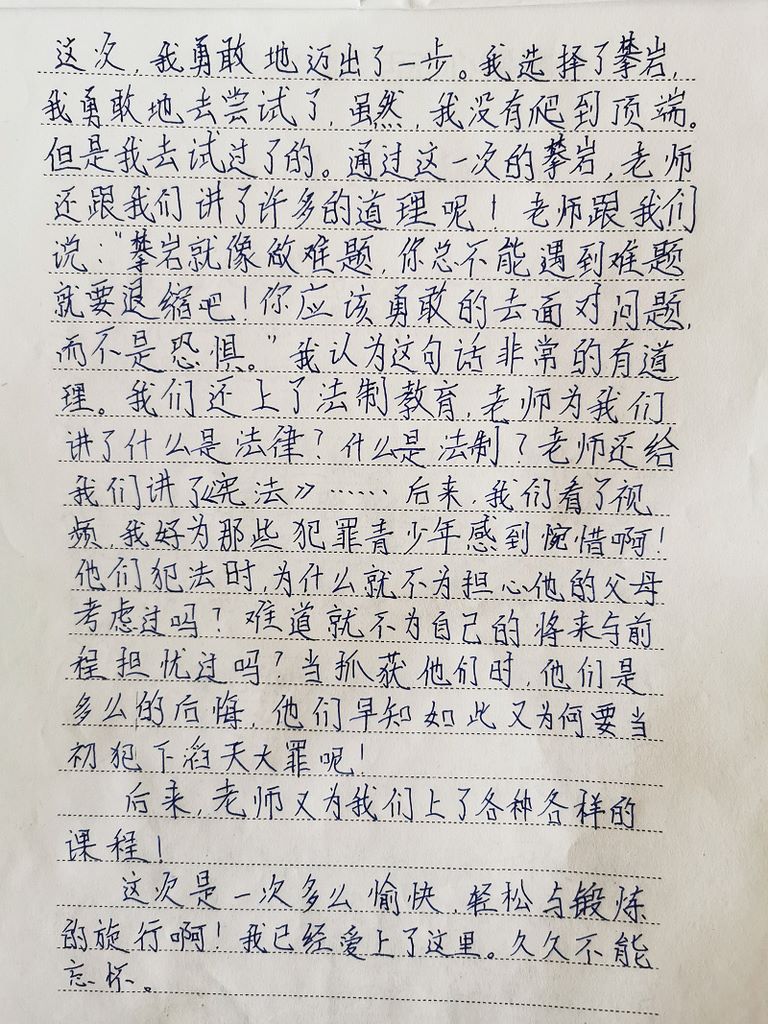 这次,我勇敢地迈出了一步。我选择了攀岩,
我勇敢地去尝试了,虽然,我没有爬到顶端。
但是我去试过了的。通过这一次的攀岩,老师
还跟我们讲了许多的道理呢！老师跟我们
说:“攀岩就像做难题,你总不能遇到难题
就要退缩吧！你应该勇敢的去面对问题,
而不是恐惧。”我认为这句话非常的有道
理。我们还上了法制教育,老师为我们
讲了什么是法律？什么是法制？老师还给
我们讲了《宪法》……后来,我们看了视
频,我好为那些犯罪青少年感到惋惜啊！
他们犯法时,为什么就不为担心他的父母
考虑过吗？难道就不为自己的将来与前
程担忧过吗？当抓获他们时,他们是
多么的后悔,他们早知如此又为何要当
初犯下滔天大罪呢！
后来,老师又为我们上了各种各样的
课程！
这次是一次多么愉快,轻松与锻炼
的旅行啊！我已经爱上了这里。久久不能
忘怀。